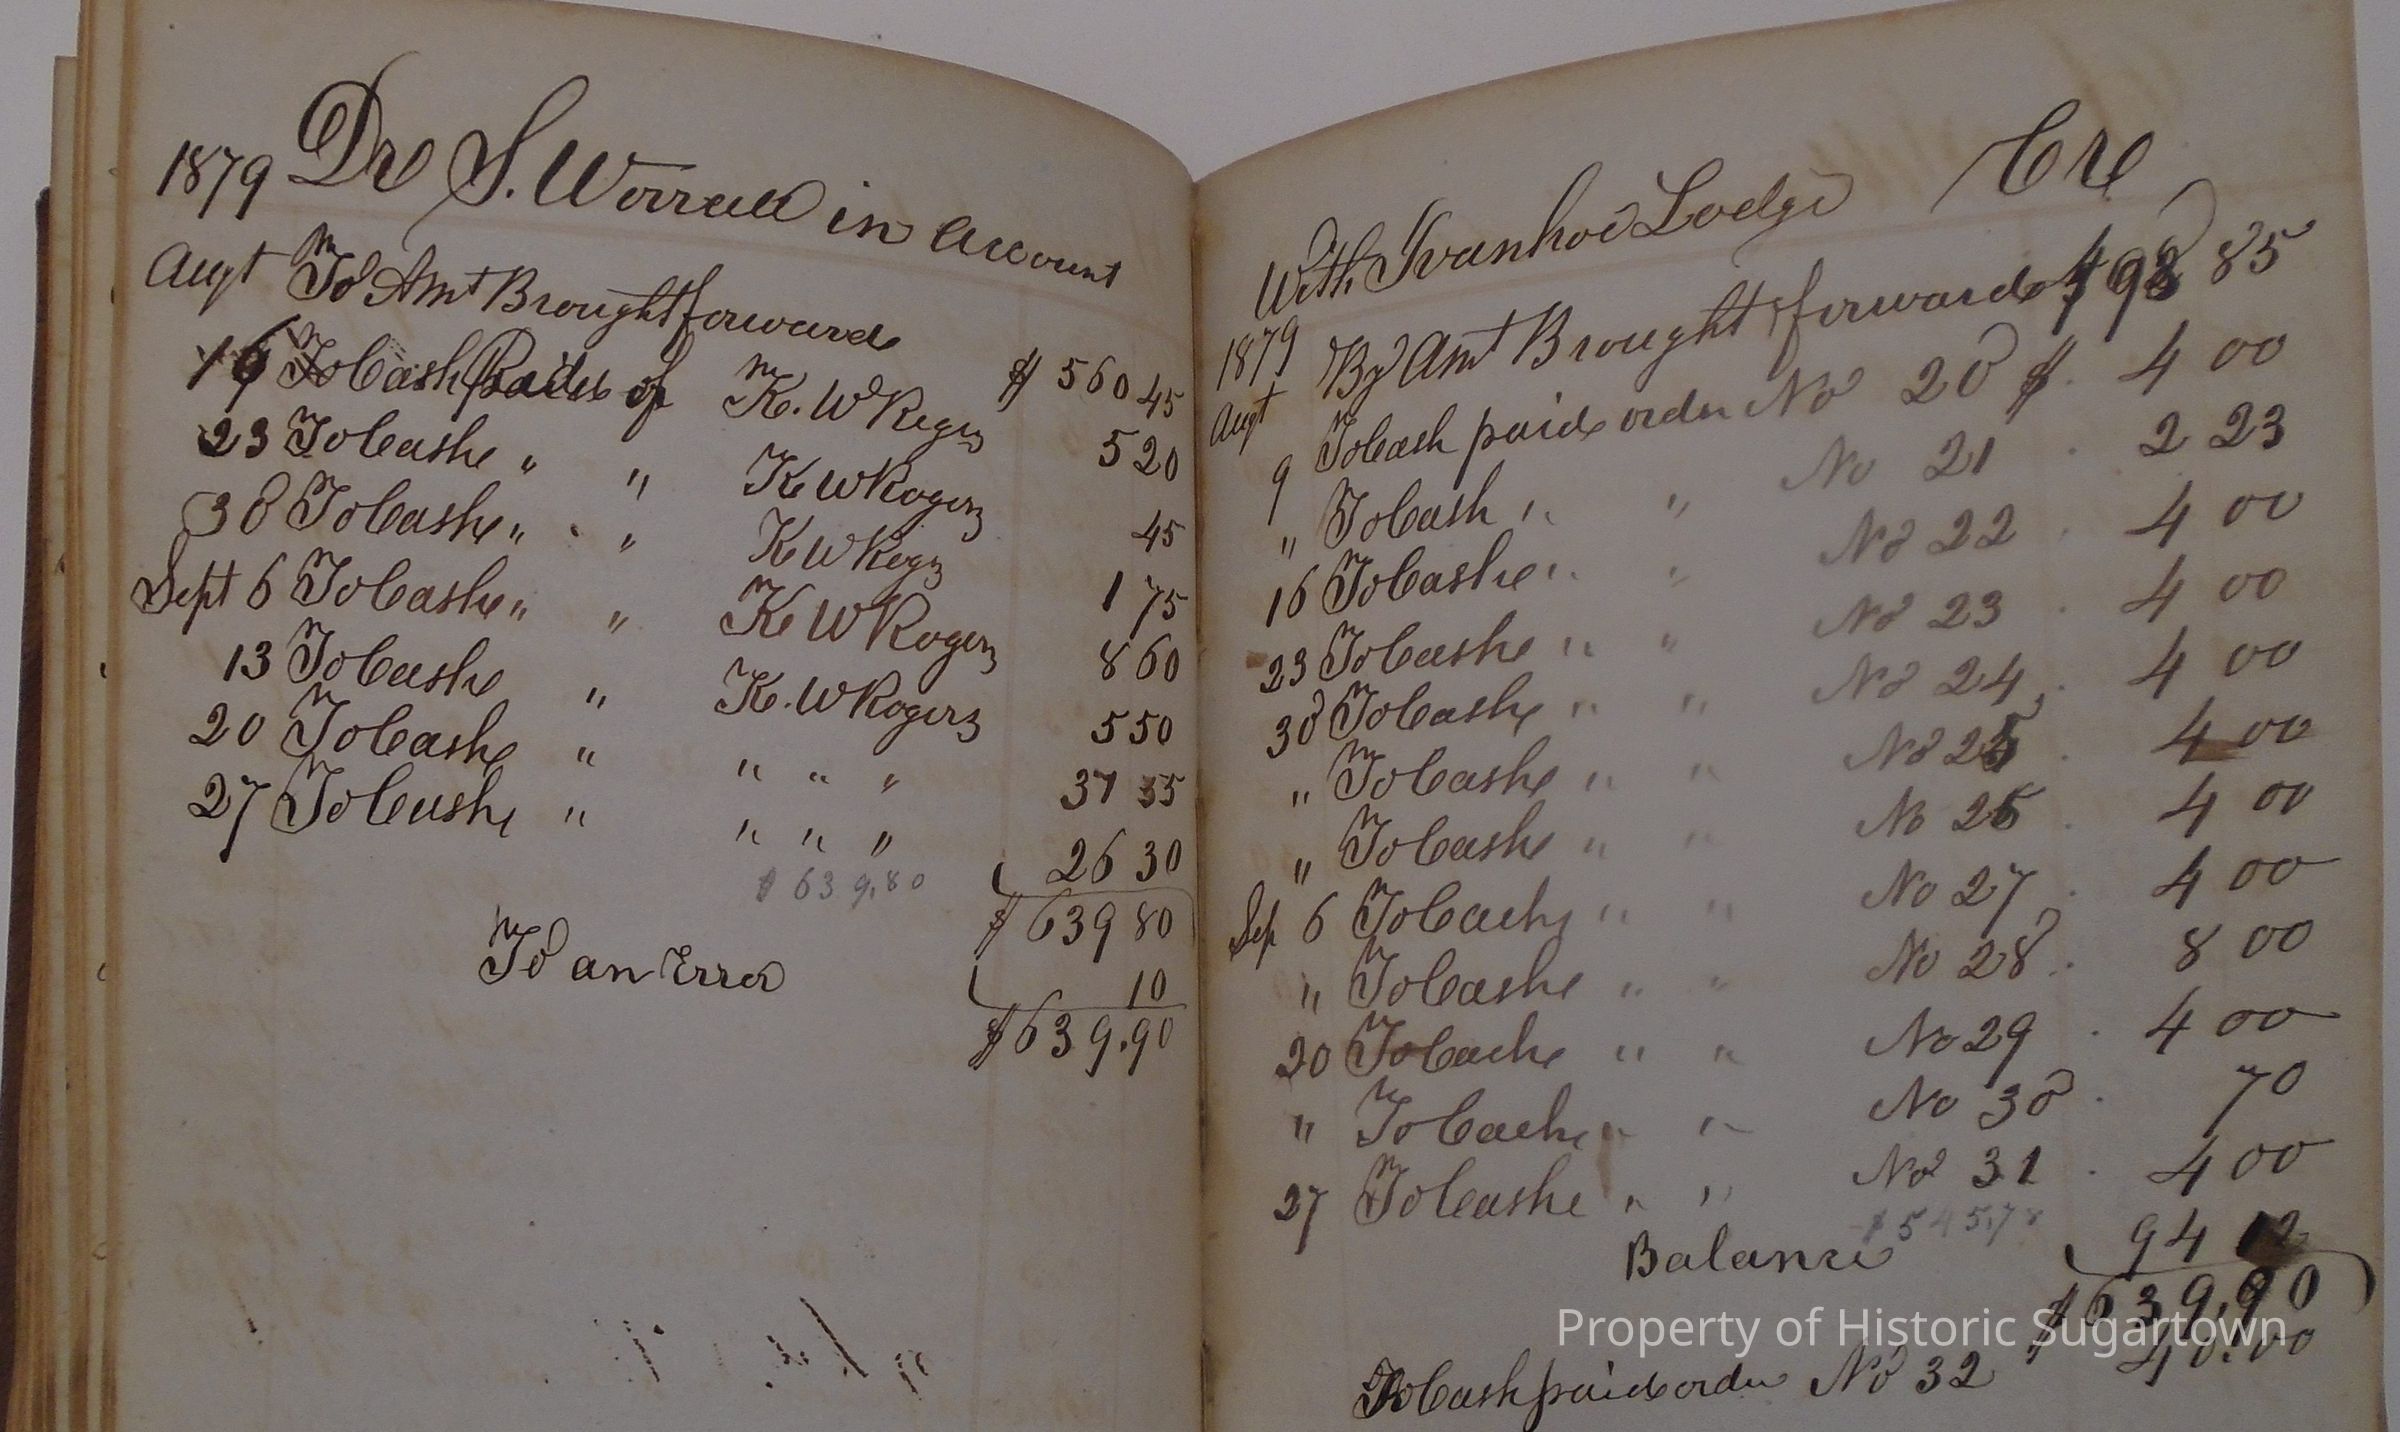 1879 Dr S. Worrall in account
Augt To Amt Brought forward $ 560 45
16 To Cash Paid of K. W Rogers 5 20
23 To Cash " " K W Rogers 45
30 To Cash " " K W Rogers 1 75
Sept 6 To Cash " " K W Rogers 8 60
13 To Cash " K. W Rogers 5 50
20 To Cash " " " " 31 55
27 To Cash " " " " 26 30
$ 639.80
$ 639 80
To an Error 10
$ 639.90
With Ivanhoe Lodge Cr
1879
Augt By Amt Brought forward $ 498 85
9 To Cash paid order No 20 $ 4 00
" To Cash " " No 21 2 23
16 To Cash " " No 22 4 00
23 To Cash " " No 23 4 00
30 To Cash " " No 24 4 00
" To Cash " " No 25 4 00
" To Cash " " No 26 4 00
Sep 6 To Cash " " No 27 4 00
" To Cash " " No 28 8 00
20 To Cash " " No 29 4 00
" To Cash " " No 30 70
27 To Cash " " No 31 4 00
$ 545.78
Balance 94 12
$ 639.90
To Cash paid order No 32 40.00
Property of Historic Sugartown